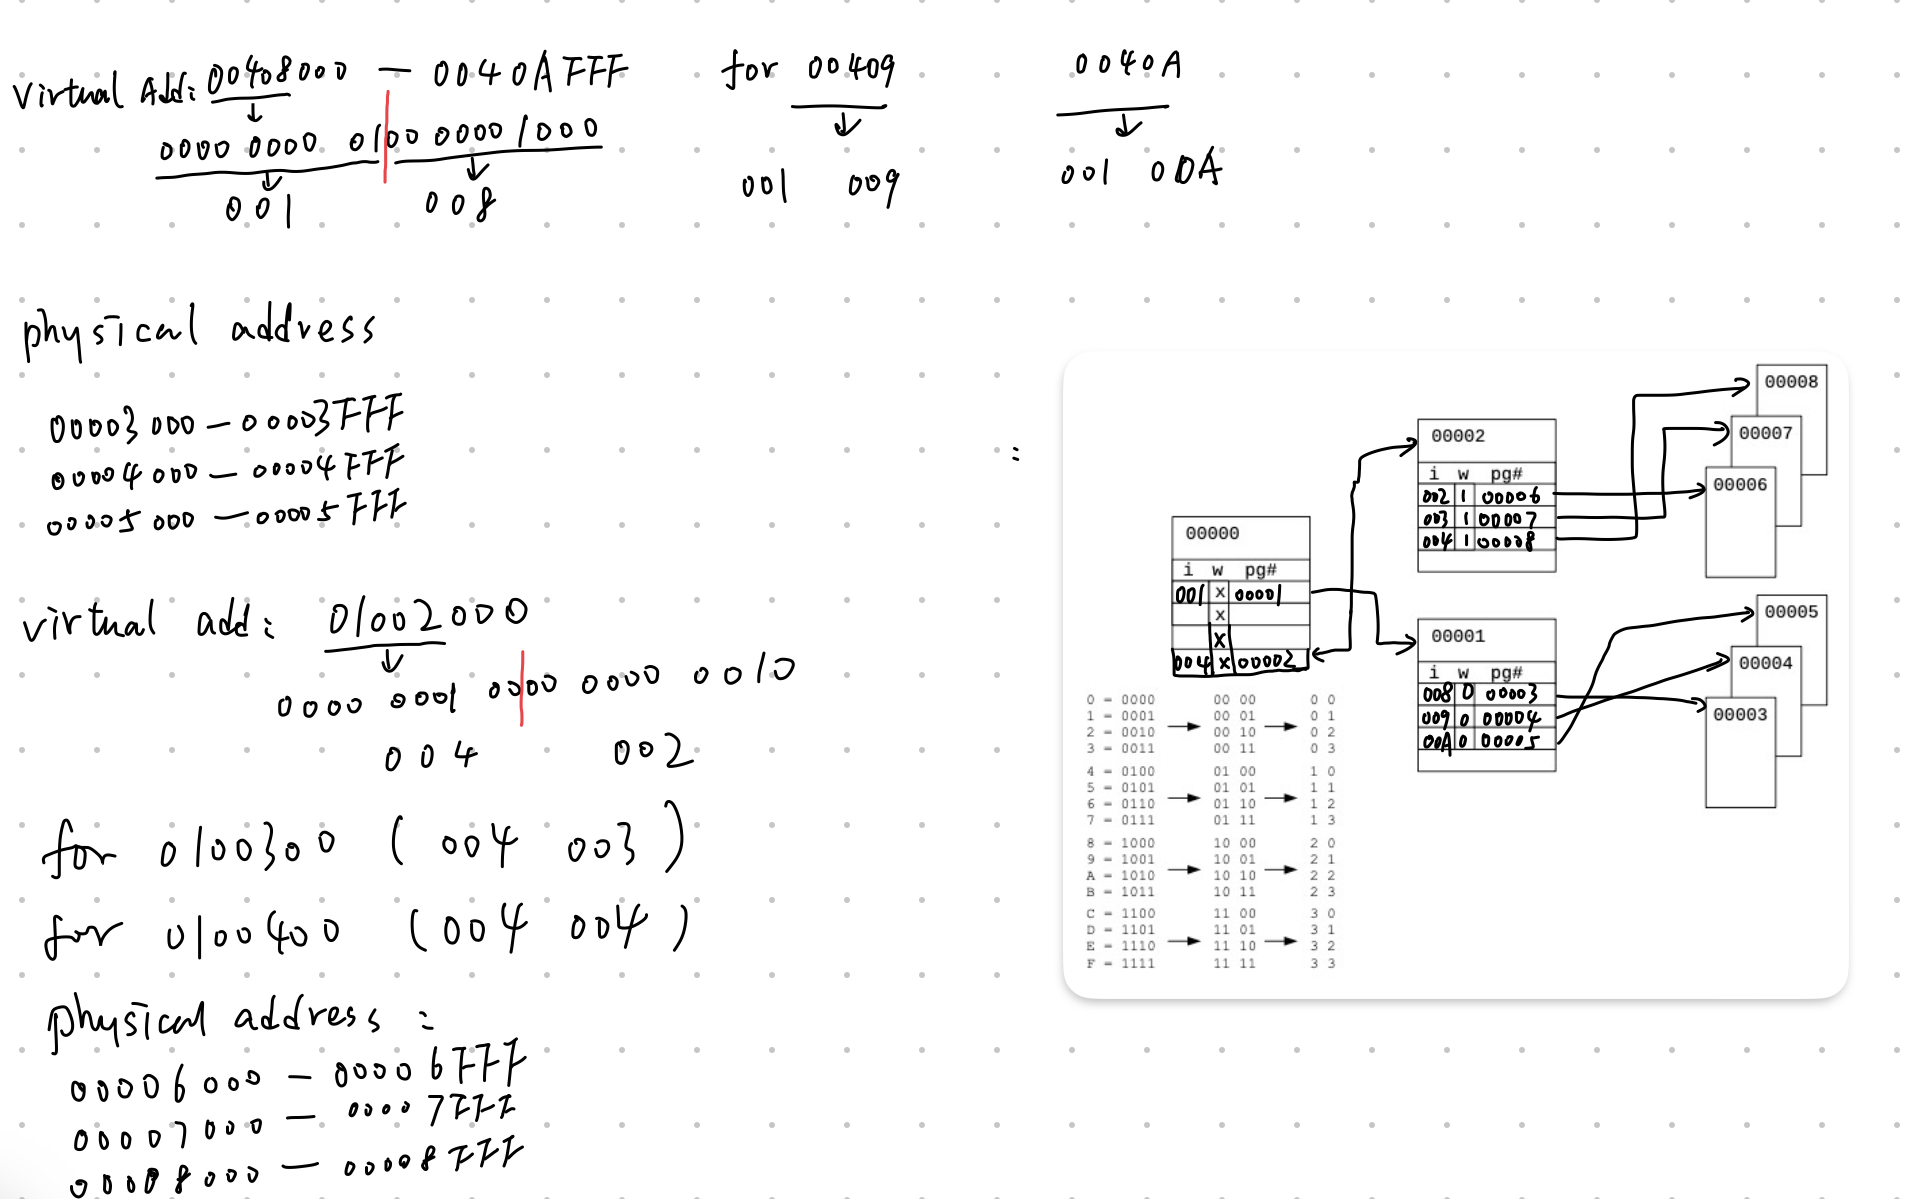 Virtual Add: 00408000 — 0040AFFF
for 00409
0040A
0000 0000 0100 0000 1000
001 008
001 009
001 00A
physical address
00003 000 — 00003FFF
00004 000 — 00004FFF
00005 000 — 00005FFF
virtual add: 01002000
0000 0001 0000 0000 0010
004 002
for 0100300 ( 004 003 )
for 0100400 ( 004 004 )
physical address :
00006 000 — 00006FFF
00007000 — 00007FFF
00008000 — 00008FFF
:
00000
i w pg#
001 x 00001
x
x
004 x 00002
00002
i w pg#
002 1 00006
003 1 00007
004 1 00008
00008
00007
00006
00001
i w pg#
008 0 00003
009 0 00004
00A 0 00005
00005
00004
00003
0 = 0000 00 00 0 0
1 = 0001 00 01 0 1
2 = 0010 00 10 0 2
3 = 0011 00 11 0 3
4 = 0100 01 00 1 0
5 = 0101 01 01 1 1
6 = 0110 01 10 1 2
7 = 0111 01 11 1 3
8 = 1000 10 00 2 0
9 = 1001 10 01 2 1
A = 1010 10 10 2 2
B = 1011 10 11 2 3
C = 1100 11 00 3 0
D = 1101 11 01 3 1
E = 1110 11 10 3 2
F = 1111 11 11 3 3